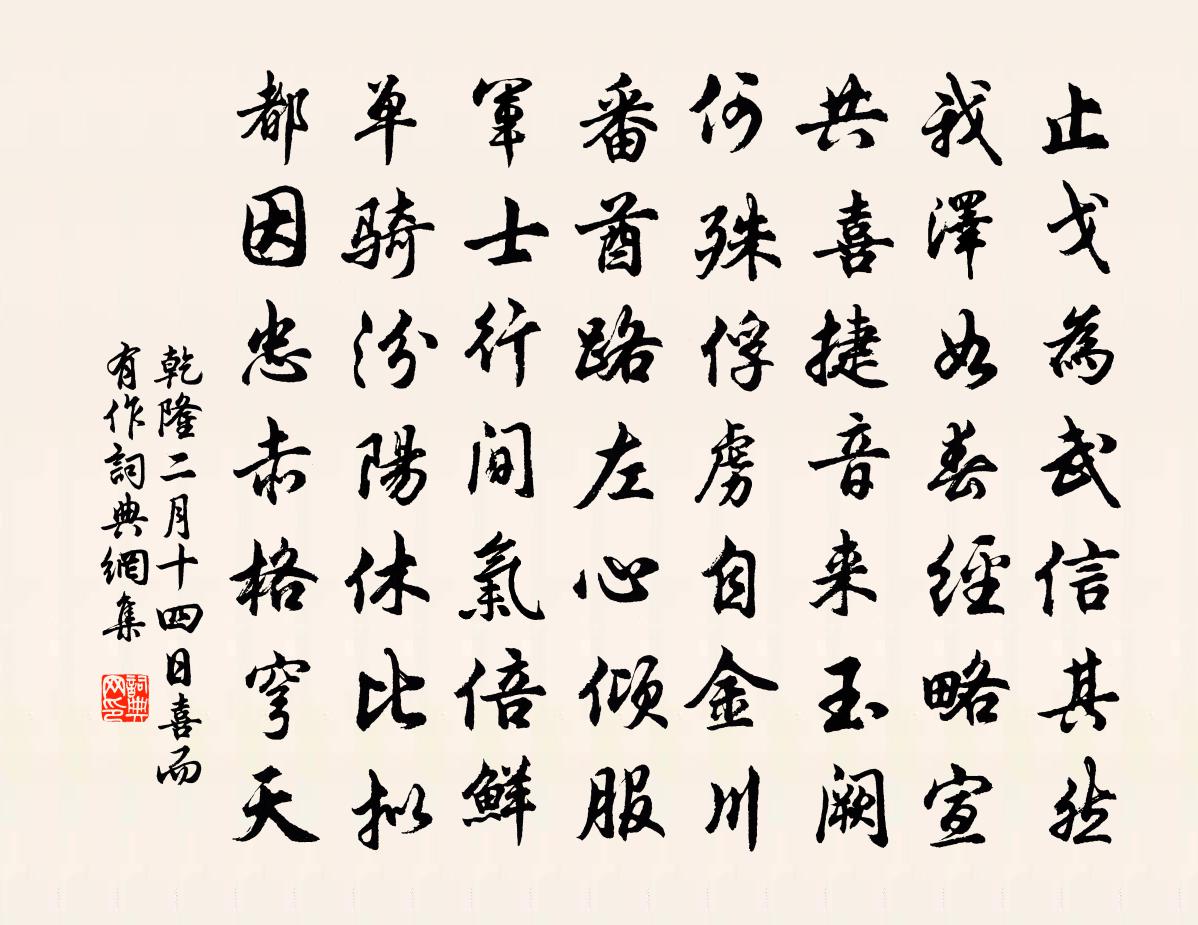 止戈為武信其然
我澤如春經略宣
共喜捷音来玉闕
何殊俘虜自金川
番酋路左心傾服
軍士行間氣倍鮮
单騎汾陽休比拟
都因忠赤格穹天
乾隆二月十四日喜而
有作詞典網集
詞典网印